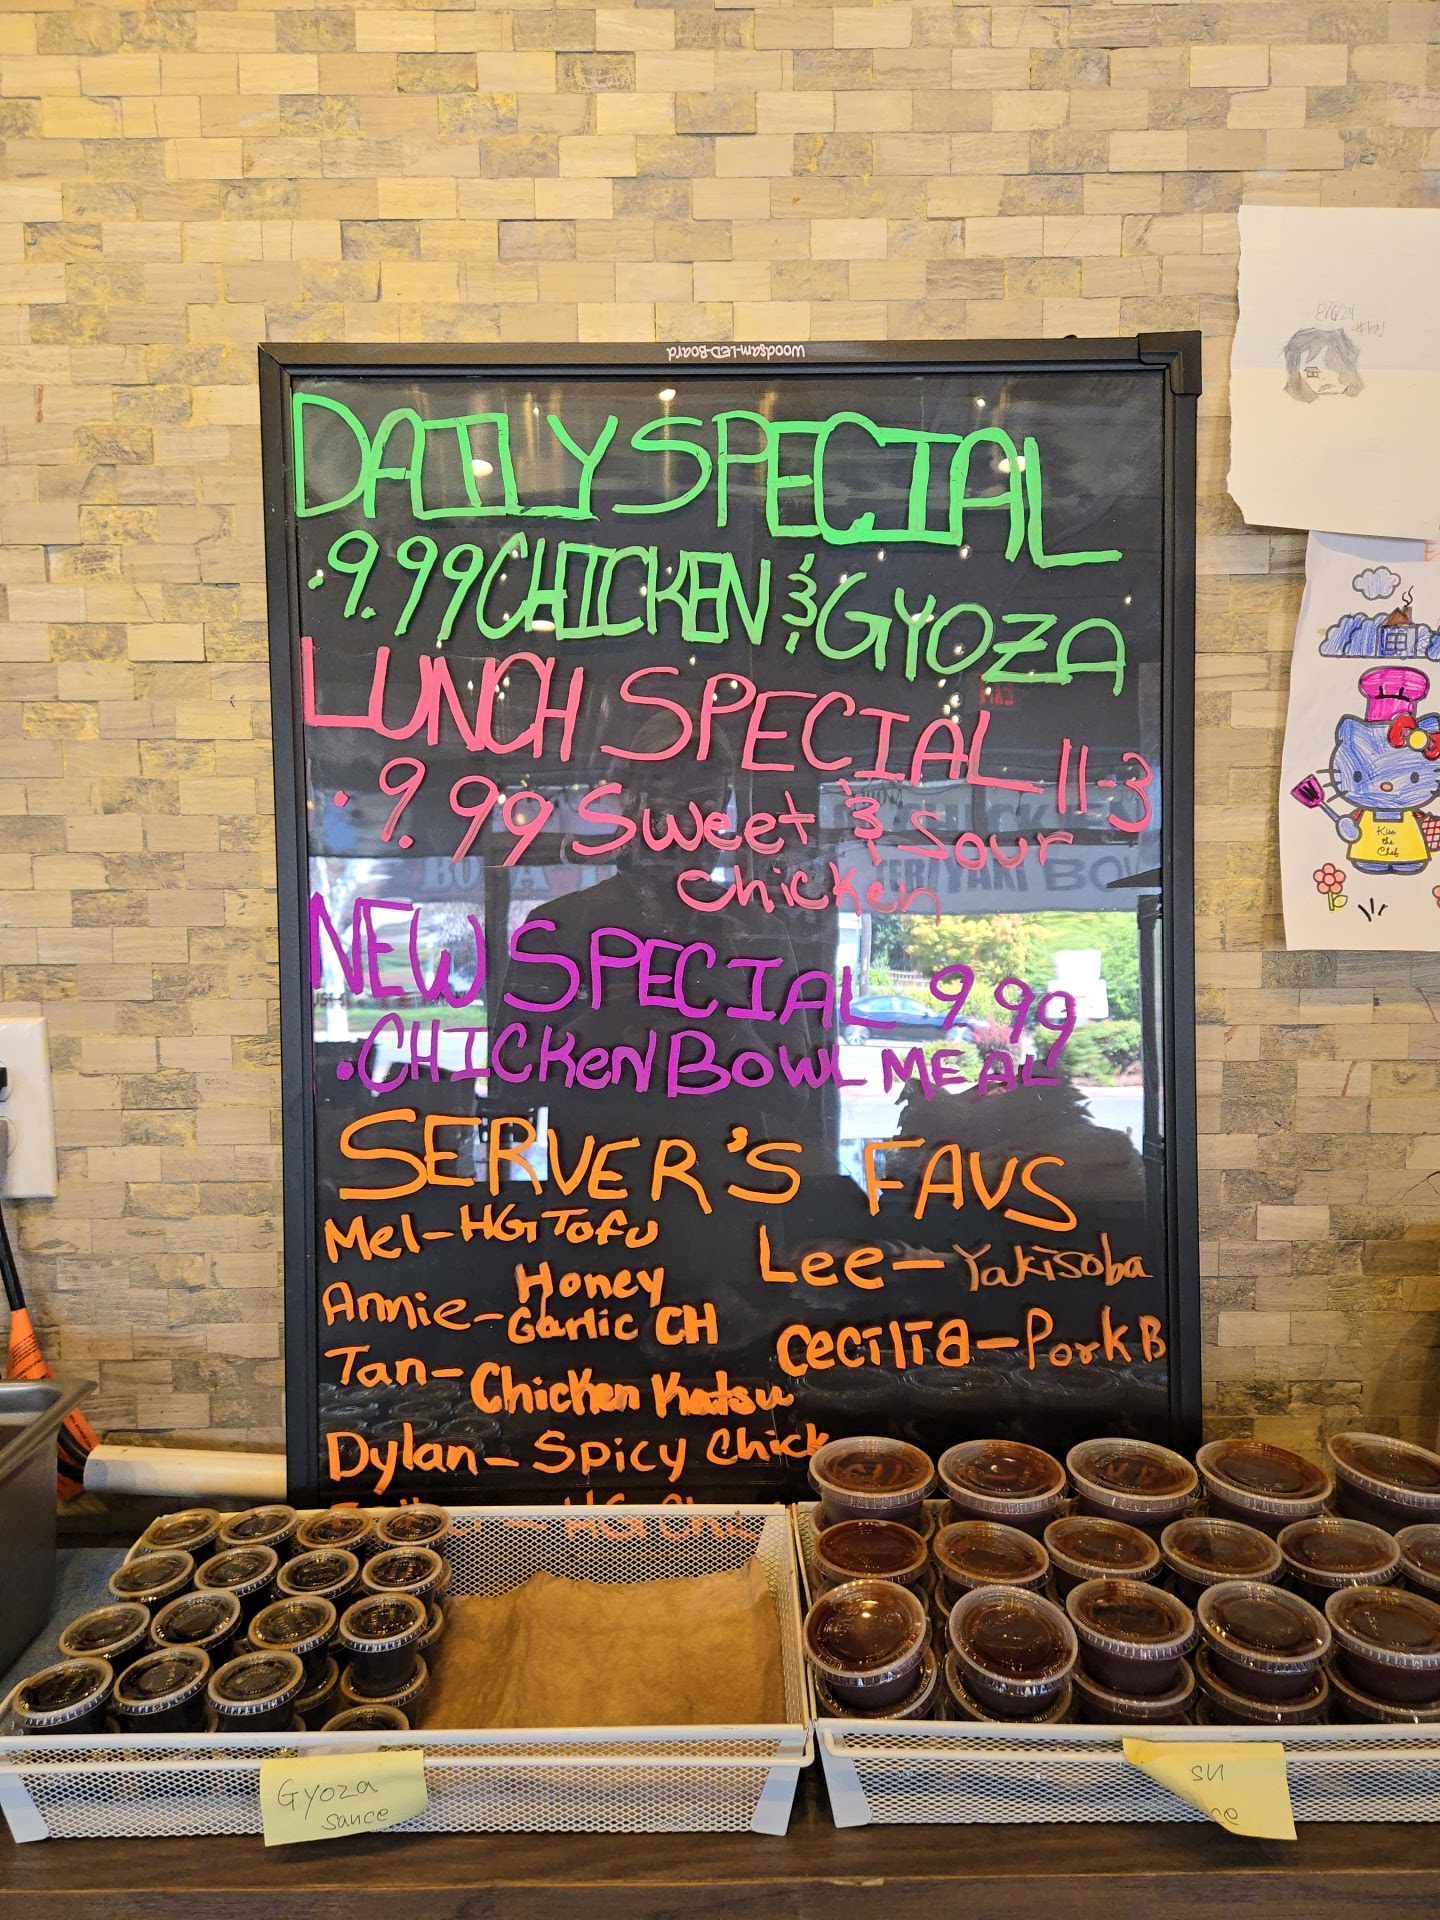 Woodsam-LED-Board
DAILY SPECIAL
.9.99 CHICKEN & GYOZA
LUNCH SPECIAL 11-3
.9.99 Sweet & Sour
chicken
NEW SPECIAL 9.99
.CHICKEN BOWL MEAL
SERVER'S FAVS
Mel-HG TOFU
Annie-Honey
Garlic CH
Tan-Chicken Katsu
Dylan-Spicy Chick
Lee-Yakisoba
Cecilia-Pork B
8/6/24
Kiss
the
Chef
TERIYAKI BO
Gyoza
sauce
su
ce